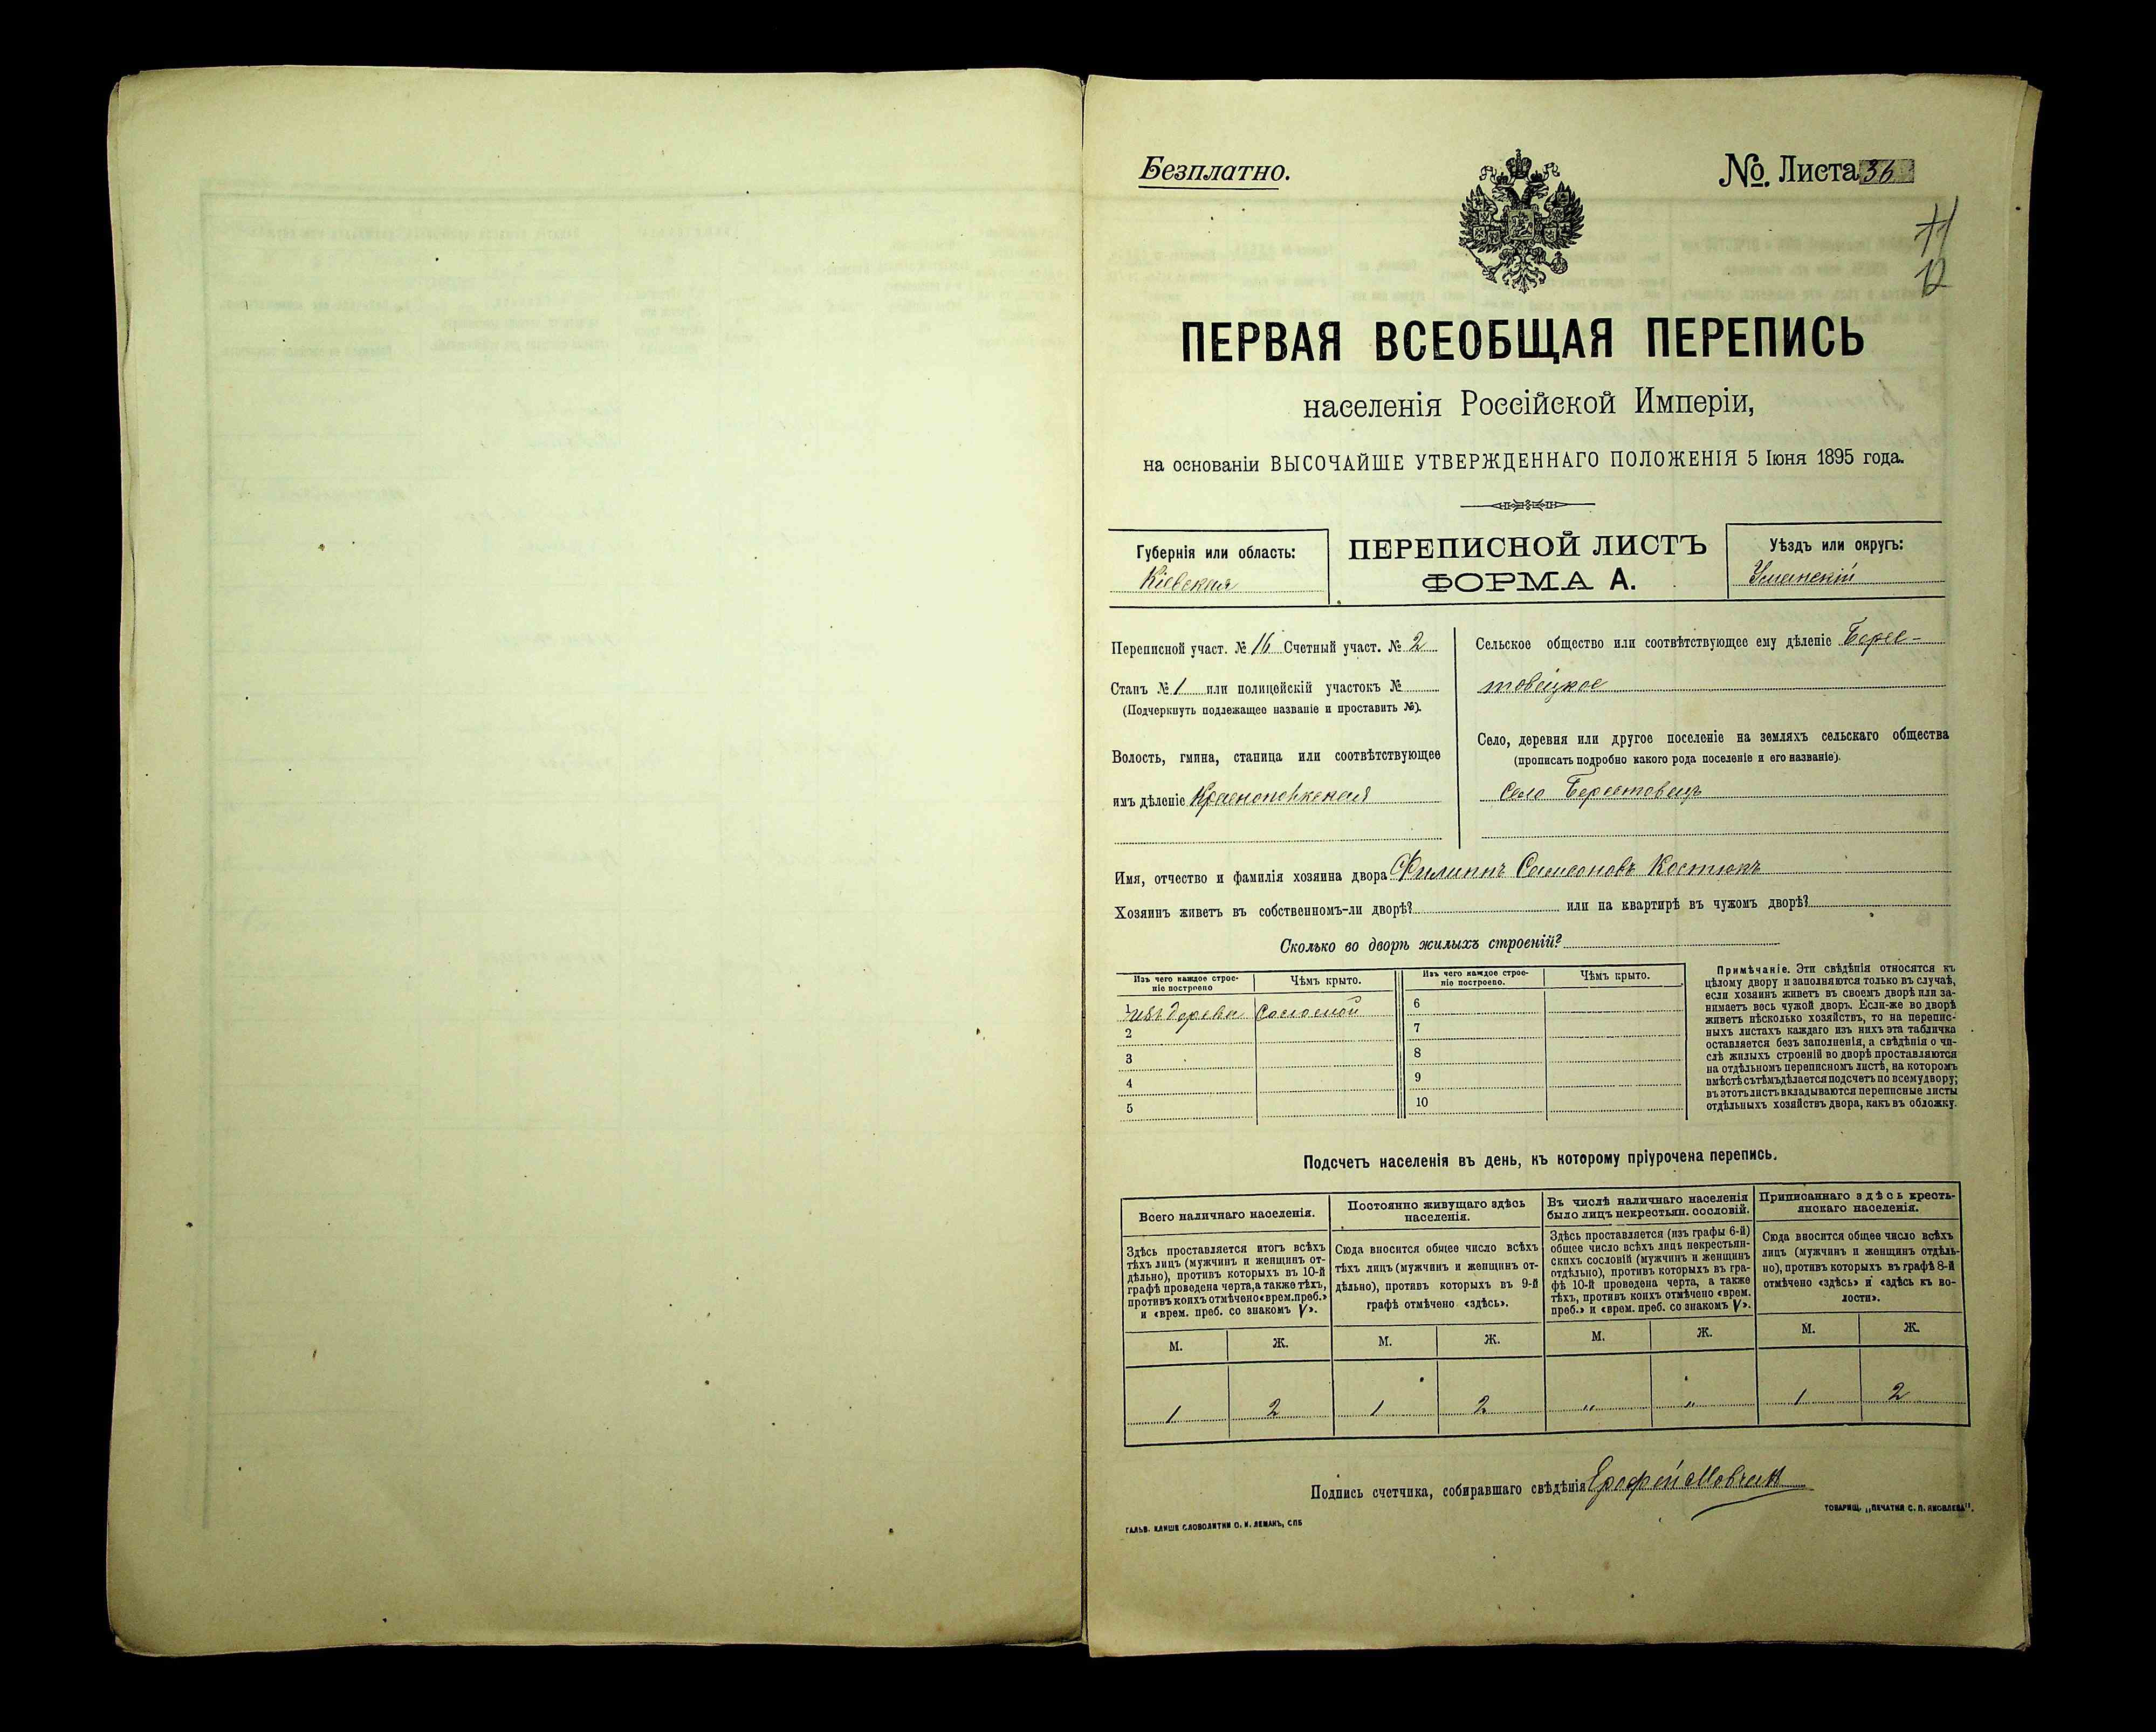 Безплатно.
№ Листа 36
11
12
ПЕРВАЯ ВСЕОБЩАЯ ПЕРЕПИСЬ
населенія Россійской Имперіи,
на основаніи ВЫСОЧАЙШЕ УТВЕРЖДЕННАГО ПОЛОЖЕНІЯ 5 Іюня 1895 года.
Губернія или область:
Кіевская
ПЕРЕПИСНОЙ ЛИСТЪ
ФОРМА А.
Уѣздъ или округъ:
Уманскій
Переписной участ. № 16 Счетный участ. № 2
Станъ № 1 или полицейскій участокъ №
(Подчеркнуть подлежащее названіе и проставить №).
Волость, гмина, станица или соотвѣтствующее
имъ дѣленіе Краснопольская
Сельское общество или соотвѣтствующее ему дѣленіе Берес-
товецкое
Село, деревня или другое поселеніе на земляхъ сельскаго общества
(прописать подробно какого рода поселеніе и его названіе).
Село Берестовецъ
Имя, отчество и фамилія хозяина двора Филиппъ Самсоновъ Костюкъ
Хозяинъ живетъ въ собственномъ-ли дворѣ? или на квартирѣ въ чужомъ дворѣ?
Сколько во дворѣ жилыхъ строеній?
Изъ чего каждое строе-
ніе построено
Чѣмъ крыто.
1 Изъ дерева Соломой
2
3
4
5
Изъ чего каждое строе-
ніе построено.
Чѣмъ крыто.
6
7
8
9
10
Примѣчаніе. Эти свѣдѣнія относятся къ
цѣлому двору и заполняются только въ случаѣ,
если хозяинъ живетъ въ своемъ дворѣ или за-
нимаетъ весь чужой дворъ. Если-же во дворѣ
живетъ нѣсколько хозяйствъ, то на перепис-
ныхъ листахъ каждаго изъ нихъ эта табличка
оставляется безъ заполненія, а свѣдѣнія о чи-
слѣ жилыхъ строеній во дворѣ проставляются
на отдѣльномъ переписномъ листѣ, на которомъ
вмѣстѣ съ тѣмъ дѣлается подсчетъ по всему двору;
въ этотъ листъ вкладываются переписные листы
отдѣльныхъ хозяйствъ двора, какъ въ обложку.
Подсчетъ населенія въ день, къ которому пріурочена перепись.
Всего наличнаго населенія.
Здѣсь проставляется итогъ всѣхъ
тѣхъ лицъ (мужчинъ и женщинъ от-
дѣльно), противъ которыхъ въ 10-й
графѣ проведена черта, а также тѣхъ,
противъ коихъ отмѣчено «врем. преб.»
и «врем. преб. со знакомъ V».
М. Ж.
1 2
Постоянно живущаго здѣсь
населенія.
Сюда вносится общее число всѣхъ
тѣхъ лицъ (мужчинъ и женщинъ от-
дѣльно), противъ которыхъ въ 9-й
графѣ отмѣчено «здѣсь».
М. Ж.
1 2
Въ числѣ наличнаго населенія
было лицъ некрестьян. сословій.
Здѣсь проставляется (изъ графы 6-й)
общее число всѣхъ лицъ некрестьян-
скихъ сословій (мужчинъ и женщинъ
отдѣльно), противъ которыхъ въ гра-
фѣ 10-й проведена черта, а также
тѣхъ, противъ коихъ отмѣчено «врем.
преб.» и «врем. преб. со знакомъ V».
М. Ж.
" "
Приписаннаго здѣсь кресть-
янскаго населенія.
Сюда вносится общее число всѣхъ
лицъ (мужчинъ и женщинъ отдѣль-
но), противъ которыхъ въ графѣ 8-й
отмѣчено «здѣсь» и «здѣсь къ во-
лости».
М. Ж.
1 2
Подпись счетчика, собиравшаго свѣдѣнія Ерофей Мовчан
ГАЛЬВ. КЛИШЕ СЛОВОЛИТНИ О. И. ЛЕМАНЪ, СПБ
ТОВАРИЩ. „ПЕЧАТНЯ С. П. ЯКОВЛЕВА".